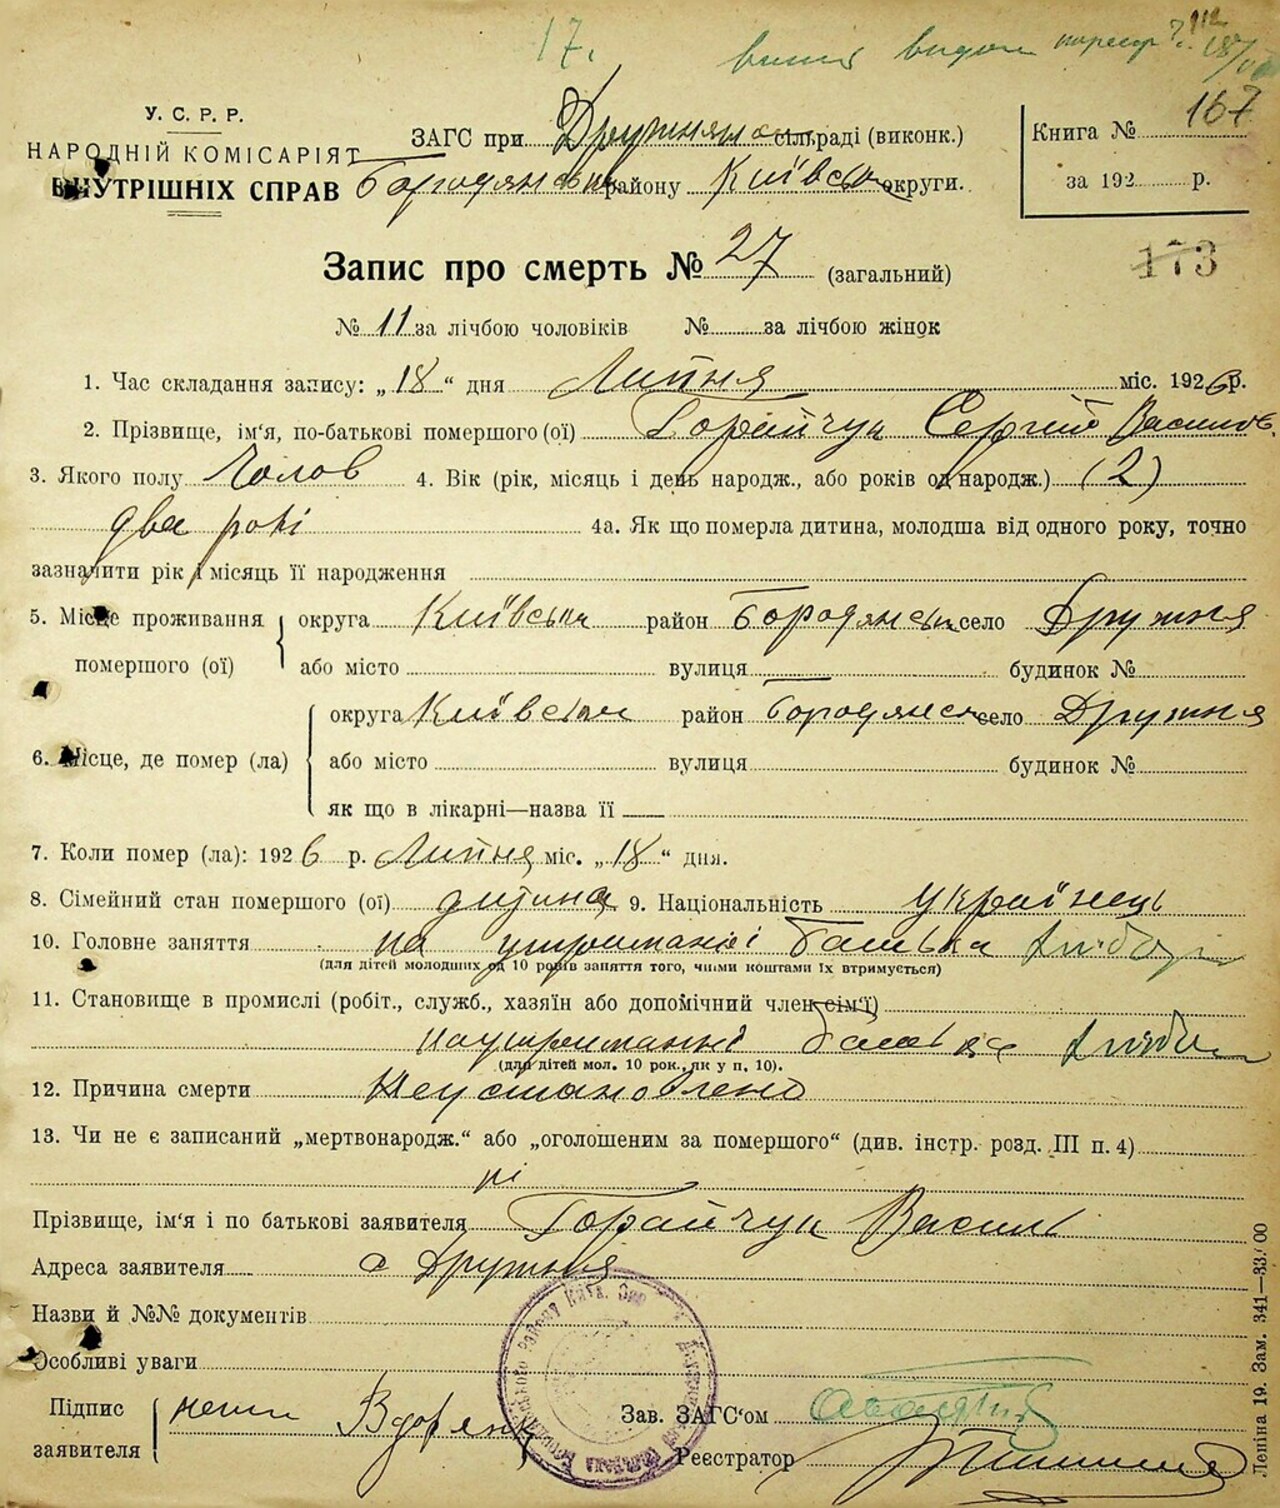 17.
У. С. Р. Р.
НАРОДНІЙ КОМІСАРІЯТ
ВНУТРІШНІХ СПРАВ
ЗАГС при Дружнян сільраді (виконк.)
Бородянськ району Київськ округи.
Книга № 167
за 192 р.
173
Запис про смерть № 27 (загальний)
№ 11 за лічбою чоловіків № за лічбою жінок
1. Час складання запису: „18“ дня Липня міс. 1926 р.
2. Прізвище, ім‘я, по-батькові помершого (ої) Горайчук Сергій Василів
3. Якого полу Чолов 4. Вік (рік, місяць і день народж., або років од народж.) (2)
два рокі 4а. Як що померла дитина, молодша від одного року, точно
зазначити рік і місяць її народження
5. Місце проживання помершого (ої) округа Київськ район Бородянськ село Дружня
або місто вулиця будинок №
6. Місце, де помер (ла) округа Київськ район Бородянск село Дружня
або місто вулиця будинок №
як що в лікарні—назва її
7. Коли помер (ла): 1926 р. Липня міс. „18“ дня.
8. Сімейний стан помершого (ої) дитина 9. Національність українець
10. Головне заняття на утриманні батька
(для дітей молодших од 10 років заняття того, чиїми коштами їх втримується)
11. Становище в промислі (робіт., служб., хазяїн або допомічний член сім‘ї)
на утриманні батька
(для дітей мол. 10 рок., як у п. 10).
12. Причина смерти Неустановлено
13. Чи не є записаний „мертвонародж.“ або „оголошеним за помершого“ (див. інстр. розд. III п. 4)
ні
Прізвище, ім‘я і по батькові заявителя Горайчук Василь
Адреса заявителя с Дружня
Назви й №№ документів
Особливі уваги
Підпис заявителя
Зав. ЗАГС‘ом
Реєстратор
Леніна 19. Зам. 341—33.000